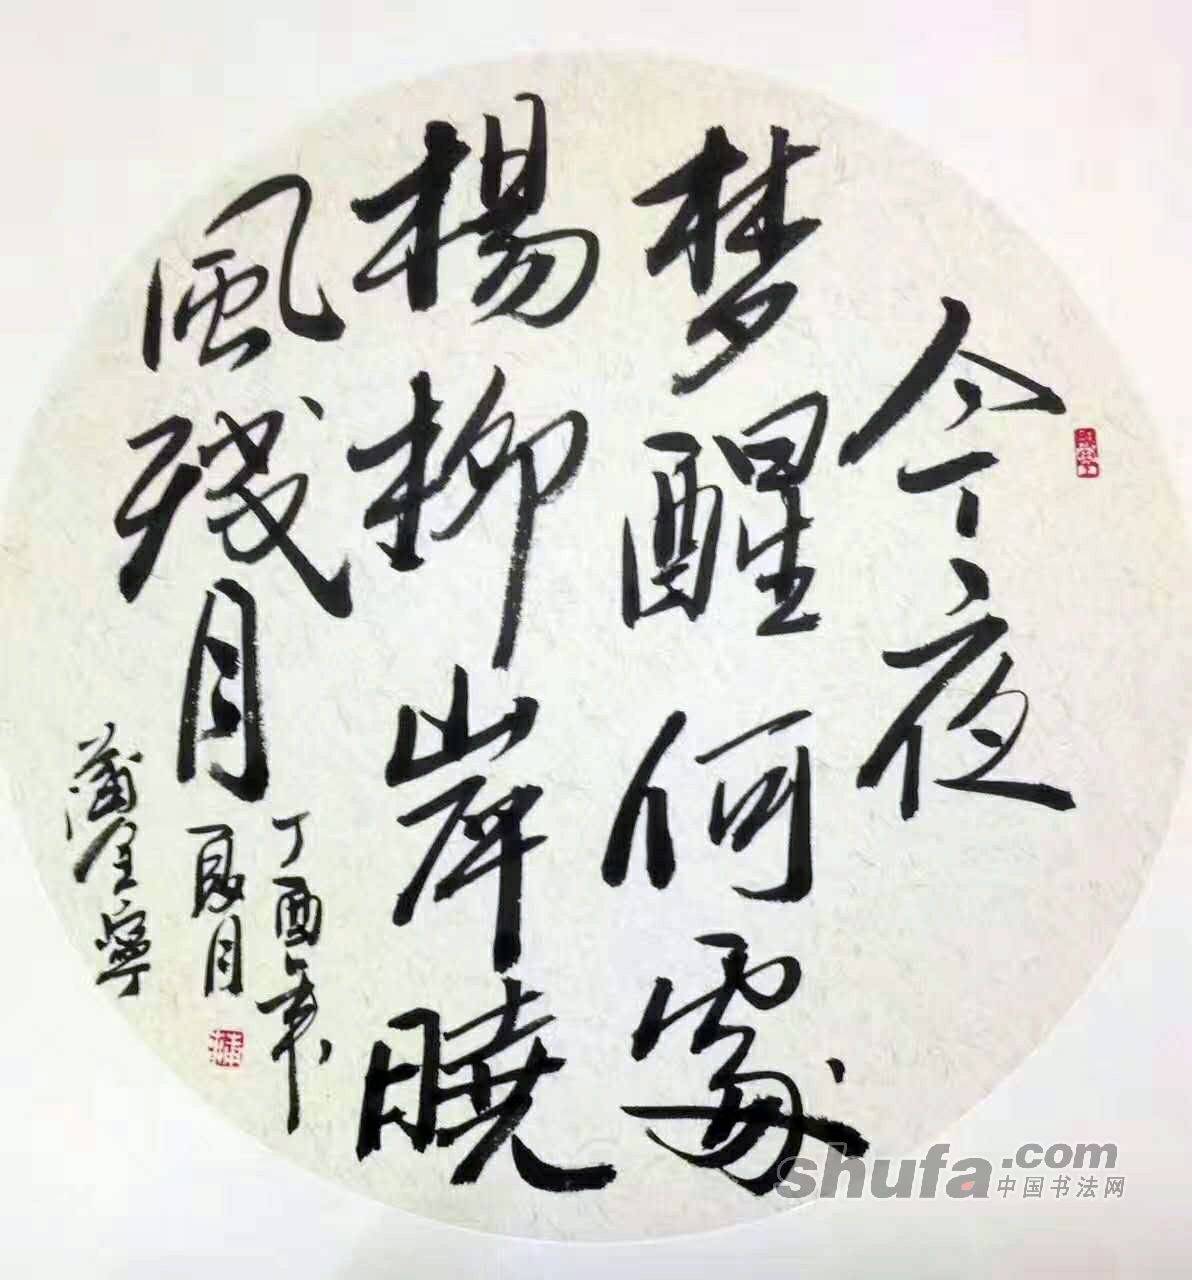 今夜
梦醒何處
楊柳岸曉
風残月
丁酉年
夏月
蒲全寧
shufa.com
中国书法网